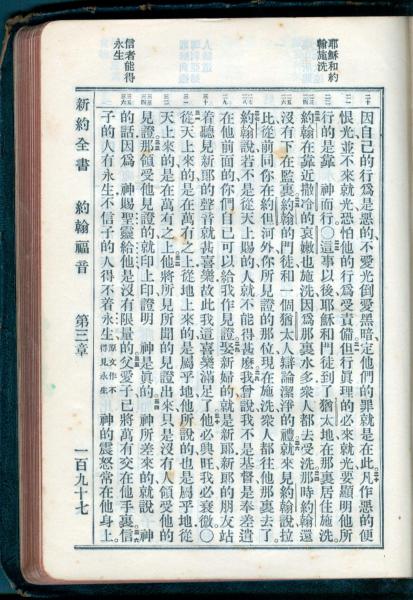 耶穌和約
翰施洗
信者能得
永生
因自己的行為是惡的、不愛光倒愛黑暗定他們的罪就是在此凡作惡的便
恨光並不來就光恐怕他的行為受責備但行真理的必來就光要顯明他所
行的是靠　神而行○這事以後耶穌和門徒到了猶太地在那裏居住施洗。
約翰在靠近撒冷的哀嫩也施洗因為那裏水多衆人都去受洗那時約翰還
沒有下在監裏約翰的門徒和一個猶太人辯論潔淨的禮就來見約翰說拉
比從前同你在約但河外你所見證的那位現在施洗衆人都往他那裏去了。
約翰說若不是從天上賜的人就不能得甚麽我曾說我不是基督是奉差遣
在他前面的你們自己可以給我作見證娶新婦的就是新郎新郎的朋友站
着聽見新郎的聲音就甚喜樂故此我這喜樂滿足了他必興旺我必衰微○
從天上來的是在萬有之上從地上來的是屬乎地他所說的也是屬乎地從
天上來的是在萬有之上他將所見所聞的見證出來只是沒有人領受他的
見證那領受他見證的就印上印證明　神是真的　神所差來的就說　神
的話因為　神賜聖靈給他是沒有限量的父愛子已將萬有交在他手裏信
子的人有永生不信子的人得不着永生原文作不得見永生　神的震怒常在他身上。
新約全書　約翰福音　第三章　一百九十七